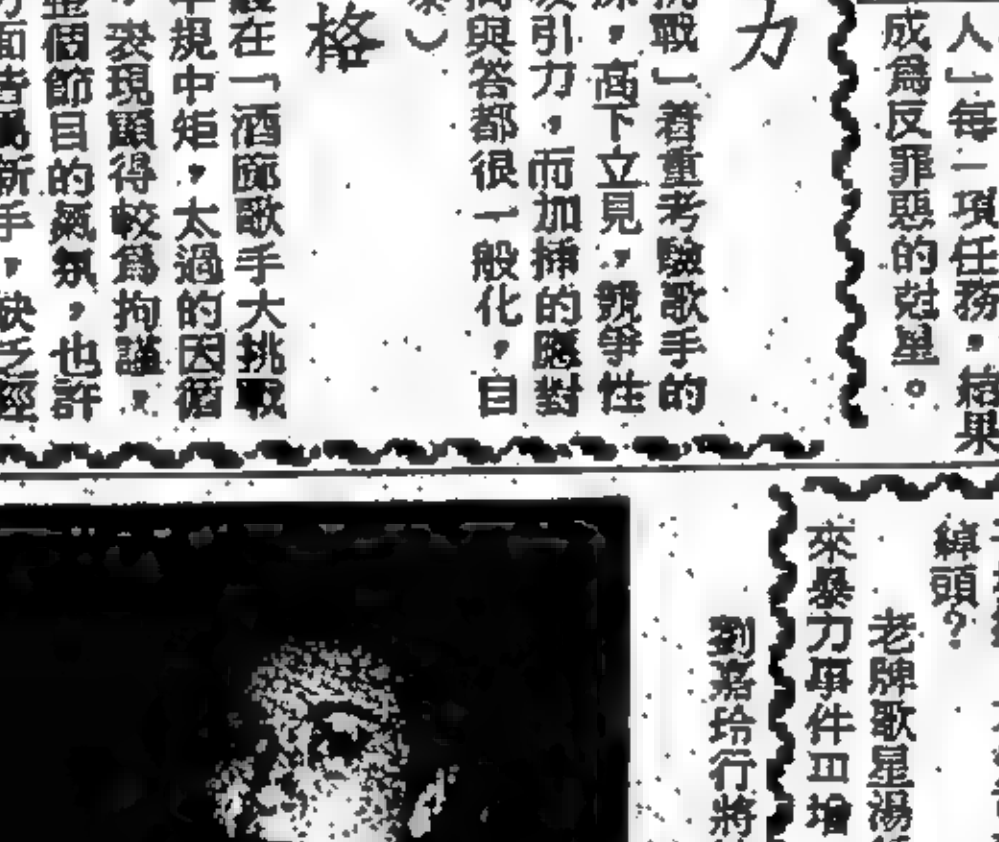 人」每一項任務，結果
成爲反罪惡的尅星。
力
戰」着重考驗歌手的
，高下立見，競爭性
引力，而加揷的應對
與答都很一般化，目
格
在「酒廊歌手大挑戰
規中矩，太過的因循
，表現顯得較爲拘謹，
個節目的氣氛，也許
面皆爲新手，缺乏經
綽頭？
老牌歌星湯
來暴力事件日增
劉嘉玲行將